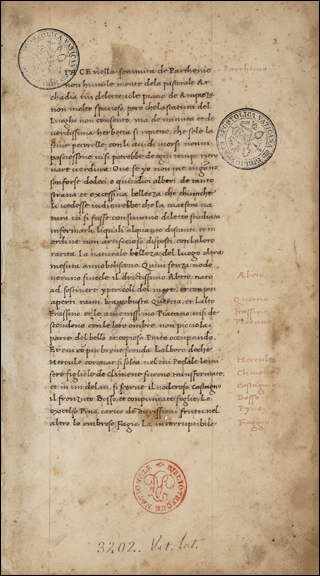 IACE nella sommita de Parthenio
non humile monte dela pastorale Ar
chadia un delecteuole piano de Ampieza
non molto spacioso, pero che la statura del
Luogho non consente, ma de minuta et de
verdissima herbetta si ripieno, che solo la
sciue pecorelle con li auidi morsi non ui
pascesseno ui si potrebbe de ogni tempo ritro
uare verdura. Oue se yo non me inganno
son forse dodeci o quindici alberi, de tanto
strana et excessiua bellecza che chiunche
li vedesse iudicarebbe che la maestra na
tura ui si fusse con summo dilecto studiata
in formarli. liquali alquanto distanti, et in
ordine non artificioso disposti con la loro
rarita. La naturale bellecza del Luogo oltra
mesura annobiliscono. Quiui senza nodo
veruno si uede il drictissimo Abeto, nato
ad sostinere i pericoli del mare, et con piu
aperti rami La robusta Quercia, et L'alto
Frassino, et lo amenissimo Platano ui si de
stendono con le loro ombre non piccola
parte del bello et copioso Prato occupando.
Et eui con piu breue fronda L'albero de che
Hercule coronar si solea, nel cui Pedale le mi
sere figliole de Climene furono transformate,
et in un de lati si scerne il noderoso Castagno
il fronzuto Bosso, et con puntate foglie, Lo
excelso Pino, carico de durissimi fructi, nel
altro lo ombroso Fagio. La incorruptibile
Parthenio
Abeto
Quercia
Frassino
Platano
Hercule
Climene
Castagno
Bosso
Pyno
Faggio
BIBLIOTHEQUE NATIONALE
3202. Vat. lat.